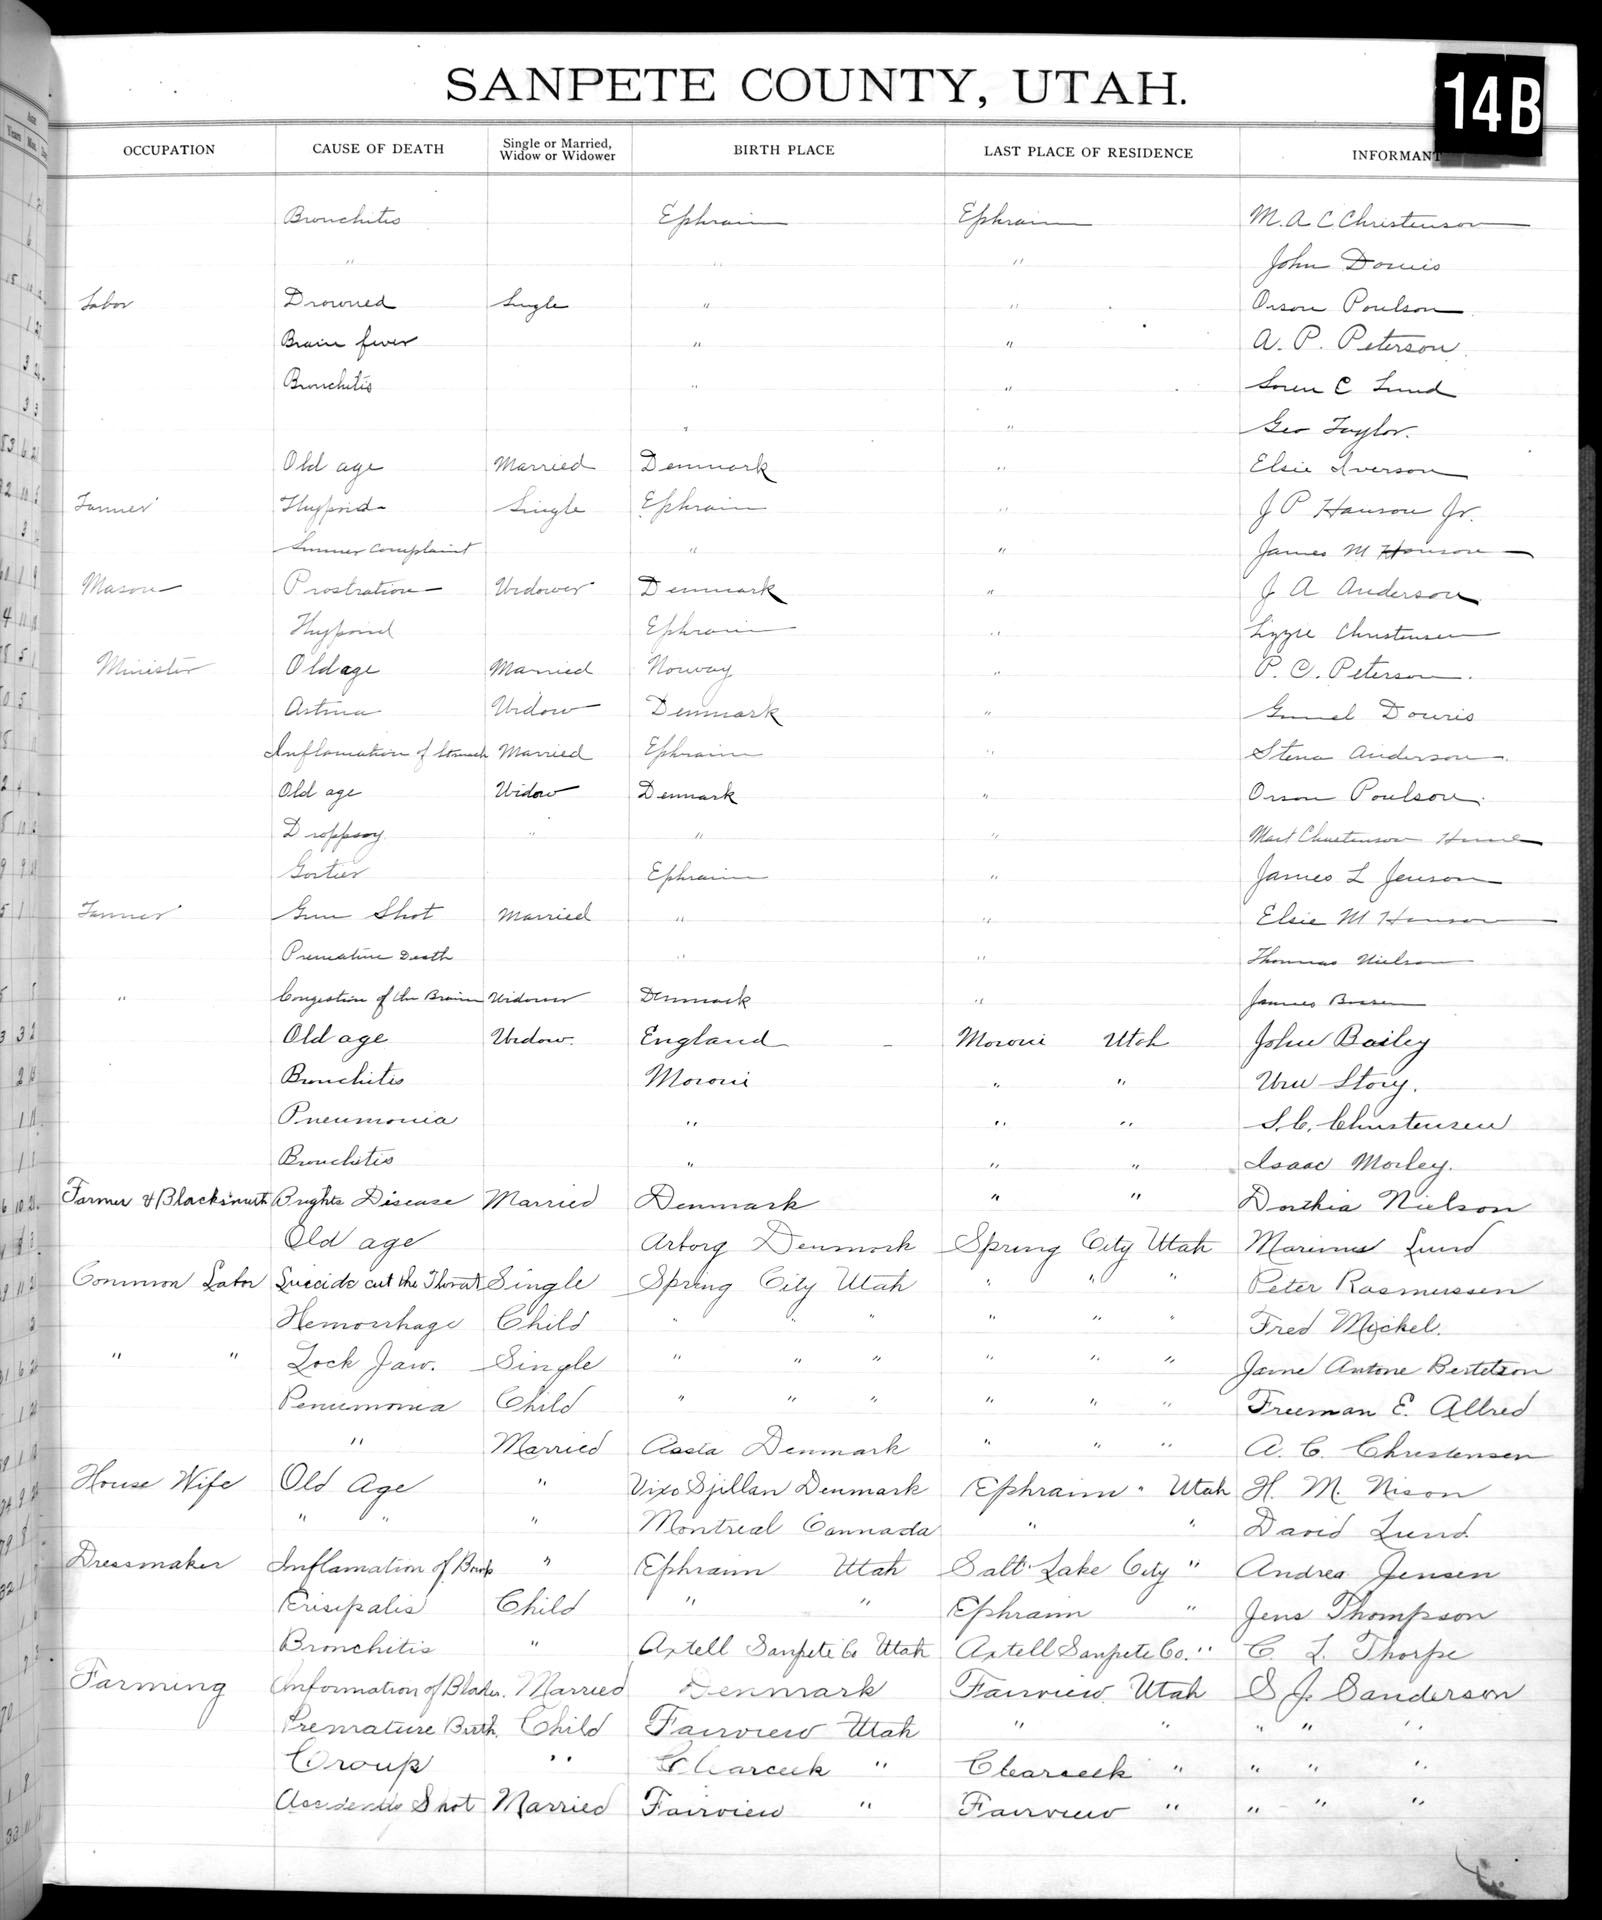 SANPETE COUNTY, UTAH.
14B
OCCUPATION CAUSE OF DEATH Single or Married, Widow or Widower BIRTH PLACE LAST PLACE OF RESIDENCE INFORMANT
Bronchitis Ephraim Ephraim M. A C Christenson
" " " John Dorius
Labor Drowned Single " " Orson Poulson
Brain fever " " A. P. Peterson
Bronchitis " " Soren C Lund
" " Geo Taylor.
Old age Married Denmark " Elsie Iverson
Farmer Thypoid Single Ephraim " J P Hanson Jr.
Summer Complaint " " James M Hanson
Mason Prostration Widower Denmark " J A Anderson
Thypoid Ephraim " Lizzie Christensen
Minister Old age Married Norway " P. C. Peterson.
Astma Widow Denmark " Dorius
Inflamation of Stomach Married Ephraim " Stena Anderson.
Old age Widow Denmark " Orson Poulson.
Droppsy " " " Christenson
Gortier Ephraim " James L Jenson
Farmer Gun Shot Married " " Elsie M Hanson
Premature Death " " Thomas Nielson
" Congestion of the Brain Widower Denmark " James
Old age Widow. England Moroni Utah John Bailey
Bronchitis Moroni " " Wm Story.
Pneumonia " " " S. C. Christensen
Bronchitis " " " Isaac Morley.
Farmer & Blacksmith Brights Disease Married Denmark " " Dorthia Nielson
Old age Arborg Denmark Spring City Utah Marinus Lund
Common Labor Suicide cut the Throat Single Spring City Utah " " " Peter Rasmussen
Hemorrhage Child " " " " " " Fred Mickel.
" " Lock Jaw. Single " " " " " " Jame Antone Bertelson
Penumonia Child " " " " " " Freeman E. Allred
" Married Assia Denmark " " " A. C. Christensen
House Wife Old Age " Vixo Sjillan Denmark Ephraim " Utah H. M. Nison
" " " Montreal Cannada " " David Lund
Dressmaker Inflamation of " Ephraim Utah Salt Lake City " Andrea Jensen
Erisipalis Child " " Ephraim " Jens Thompson
Bronchitis " Axtell Sanpete Co Utah Axtell Sanpete Co. " C. L. Thorpe
Farming Information of Blader. Married Denmark Fairview Utah S J. Sanderson
Premature Birth. Child Fairview Utah " " " " "
Croup " Clearceek " Clearceek " " " "
Accidently Shot Married Fairview " Fairview " " " "